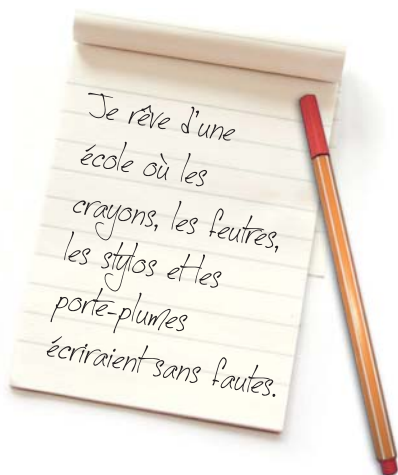 Je rêve d'une
école où les
crayons, les feutres,
les stylos et les
porte-plumes
écriraient sans fautes.